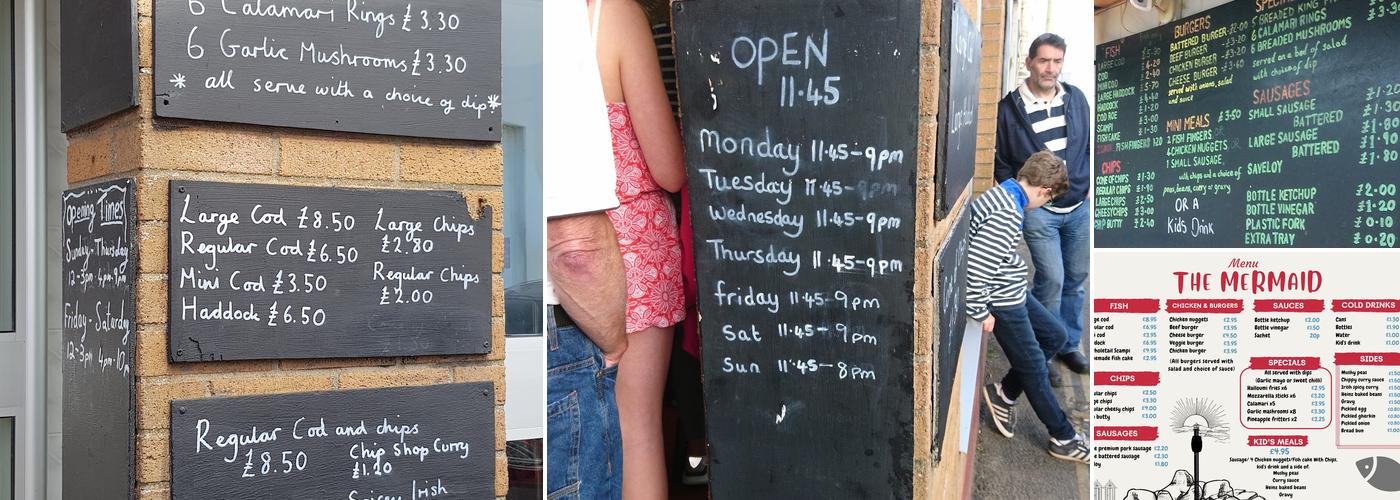 6 Calamari Rings £3.30
6 Garlic Mushrooms £3.30
* all serve with a choice of dip *
Opening Times
Sunday-Thursday
12-3pm 4pm-9pm
Friday-Saturday
12-3pm 4pm-10
Large Cod £8.50
Regular Cod £6.50
Mini Cod £3.50
Haddock £6.50
Large Chips
£2.80
Regular Chips
£2.00
Regular Cod and chips
£8.50
Chip Shop Curry
£1.20
Irish
OPEN
11.45
Monday 11.45-9pm
Tuesday 11.45-9pm
Wednesday 11.45-9pm
Thursday 11.45-9pm
friday 11.45-9pm
Sat 11.45-9pm
Sun 11.45-8pm
FISH
LARGE
COD
MINI COD
LARGE HADDOCK
HADDOCK
COD ROE
SCAMPI
FISH CAKE
CHIPS
CONE OF CHIPS
REGULAR CHIPS
LARGE CHIPS
CHEESY CHIPS
CHIP BUTTY
BURGERS
BATTERED BURGER
BEEF BURGER
CHICKEN BURGER
CHEESE BURGER
served with onions, salad
and sauce
MINI MEALS £3.50
2 FISH FINGERS
4 CHICKEN NUGGETS
1 SMALL SAUSAGE
with chips and a choice of
peas, beans, curry or gravy
OR A
Kids Drink
5 BREADED KING
6 CALAMARI RINGS
6 BREADED MUSHROOMS
served on a bed of salad
with choice of dip
SAUSAGES
SMALL SAUSAGE
BATTERED
LARGE SAUSAGE
BATTERED
SAVELOY
BOTTLE KETCHUP £2.00
BOTTLE VINEGAR £1.20
PLASTIC FORK £0.10
EXTRA TRAY £0.20
Menu
THE MERMAID
FISH
£8.95
£6.95
CHIPS
ular chips £2.50
ge chips £3.50
ular cheesy chips £4.00
butty £3.00
SAUSAGES
e premium pork sausage £2.20
e battered sausage £2.30
loy £1.80
CHICKEN & BURGERS
Chicken nuggets £2.95
Beef burger £3.95
Cheese burger £4.50
Veggie burger £3.95
Chicken burger £3.95
(All burgers served with
salad and choice of sauce)
SAUCES
Bottle ketchup £2.00
Bottle vinegar £1.50
Sachet 20p
SPECIALS
All served with dips
(Garlic mayo or sweet chilli)
Halloumi fries x6 £2.95
Mozzarella sticks x6 £3.20
Calamari x5 £3.95
Garlic mushrooms x8 £3.30
Pineapple fritters x2 £2.25
KID'S MEALS
£4.95
Sausage/ 4 Chicken nuggets/Fish cake With Chips,
kid's drink and a side of:
Mushy peas
Curry sauce
Heinz baked beans
Gravy
COLD DRINKS
Cans
Bottles
Water
Kid's drink
SIDES
Mushy peas
Chippy curry sauce
Irish spicy curry
Heinz baked beans
Gravy
Pickled egg
Pickled gherkin
Pickled onion
Bread bun